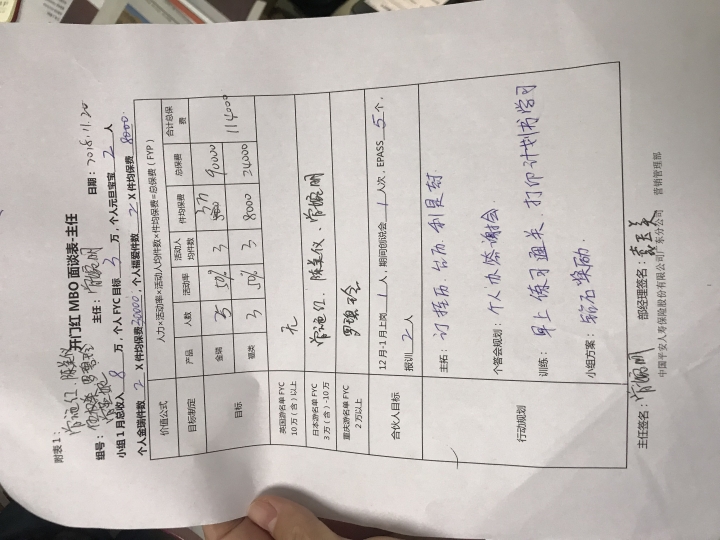 附表1：
开门红MBO面谈表-主任
组号： 主任： 日期：2018.11.20
小组1月总收入 8 万，个人FYC目标 3 万，个人元旦宝宝 2 人
个人金瑞件数 2 X件均保费 20000；个人福爱件数 2 X件均保费 8000.
价值公式 人力×活动率×活动人均件数×件均保费=总保费（FYP）
目标制定 产品 人数 活动率 活动人均件数 件均保费 总保费 合计总保费
目标 金瑞 5 50% 3 3万 90000 114000
福类 3 50% 3 8000 24000
英国游名单FYC 10万（含）以上 无
日本游名单FYC 3万（含）-10万
重庆游名单FYC 2万以上
合伙人目标 12月-1月上岗 1 人，期间创说会 1 人次，EPASS 5 个，
报训 2 人
行动规划 主拓：订挂历.台历.利是封
个答会规划：个人办答谢会.
训练：早上练习通关.打印计划书学习
小组方案：钻石奖励.
主任签名： 部经理签名：
中国平安人寿保险股份有限公司广东分公司 营销管理部